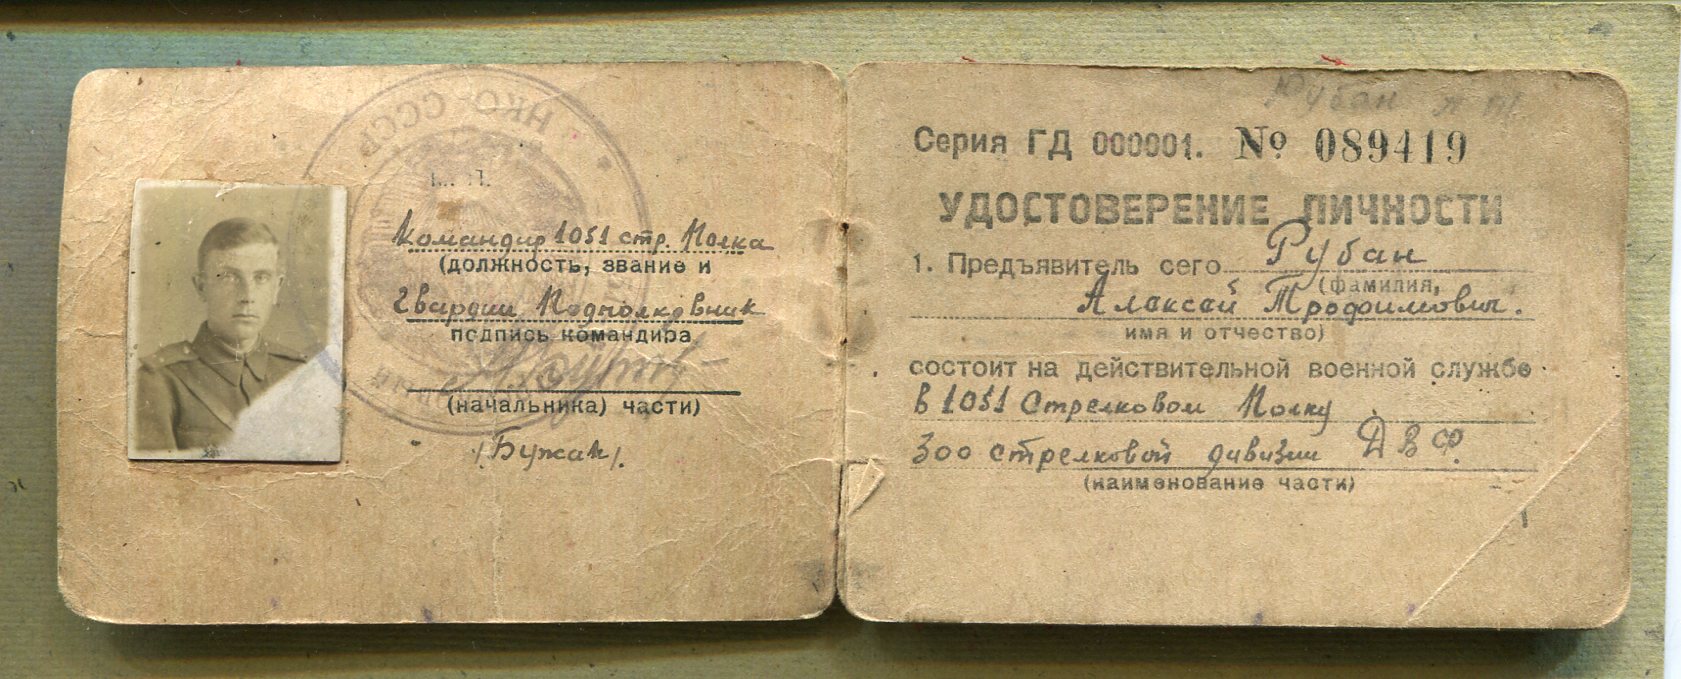 НКО-СССР
М. П.
Командир 1051 стр. Полка
(должность, звание и
Гвардии Подполковник
подпись командира
(начальника) части)
/Бужак/.
Рубан А Т
Серия ГД 000001. № 089419
УДОСТОВЕРЕНИЕ ЛИЧНОСТИ
1. Предъявитель сего Рубан
(фамилия,
Алексей Трофимович.
имя и отчество)
состоит на действительной военной службе
в 1051 Стрелковом Полку
300 стрелковой дивизии ДВФ.
(наименование части)